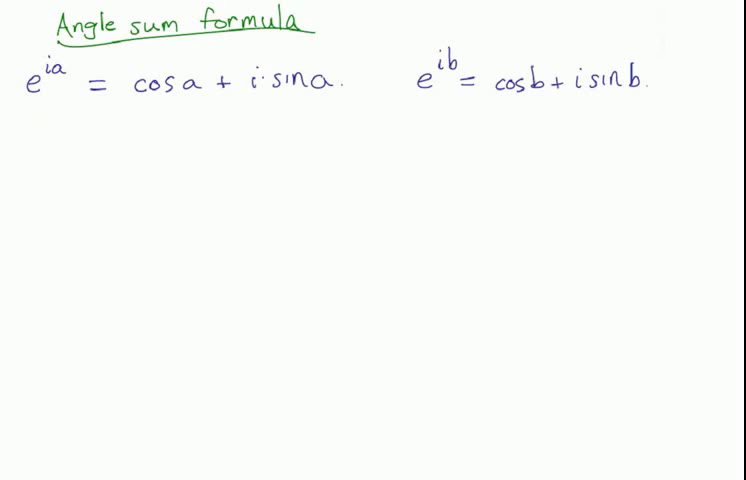 Angle sum formula
e^{ia} = cos a + i·sin a. e^{ib} = cos b + i sin b.